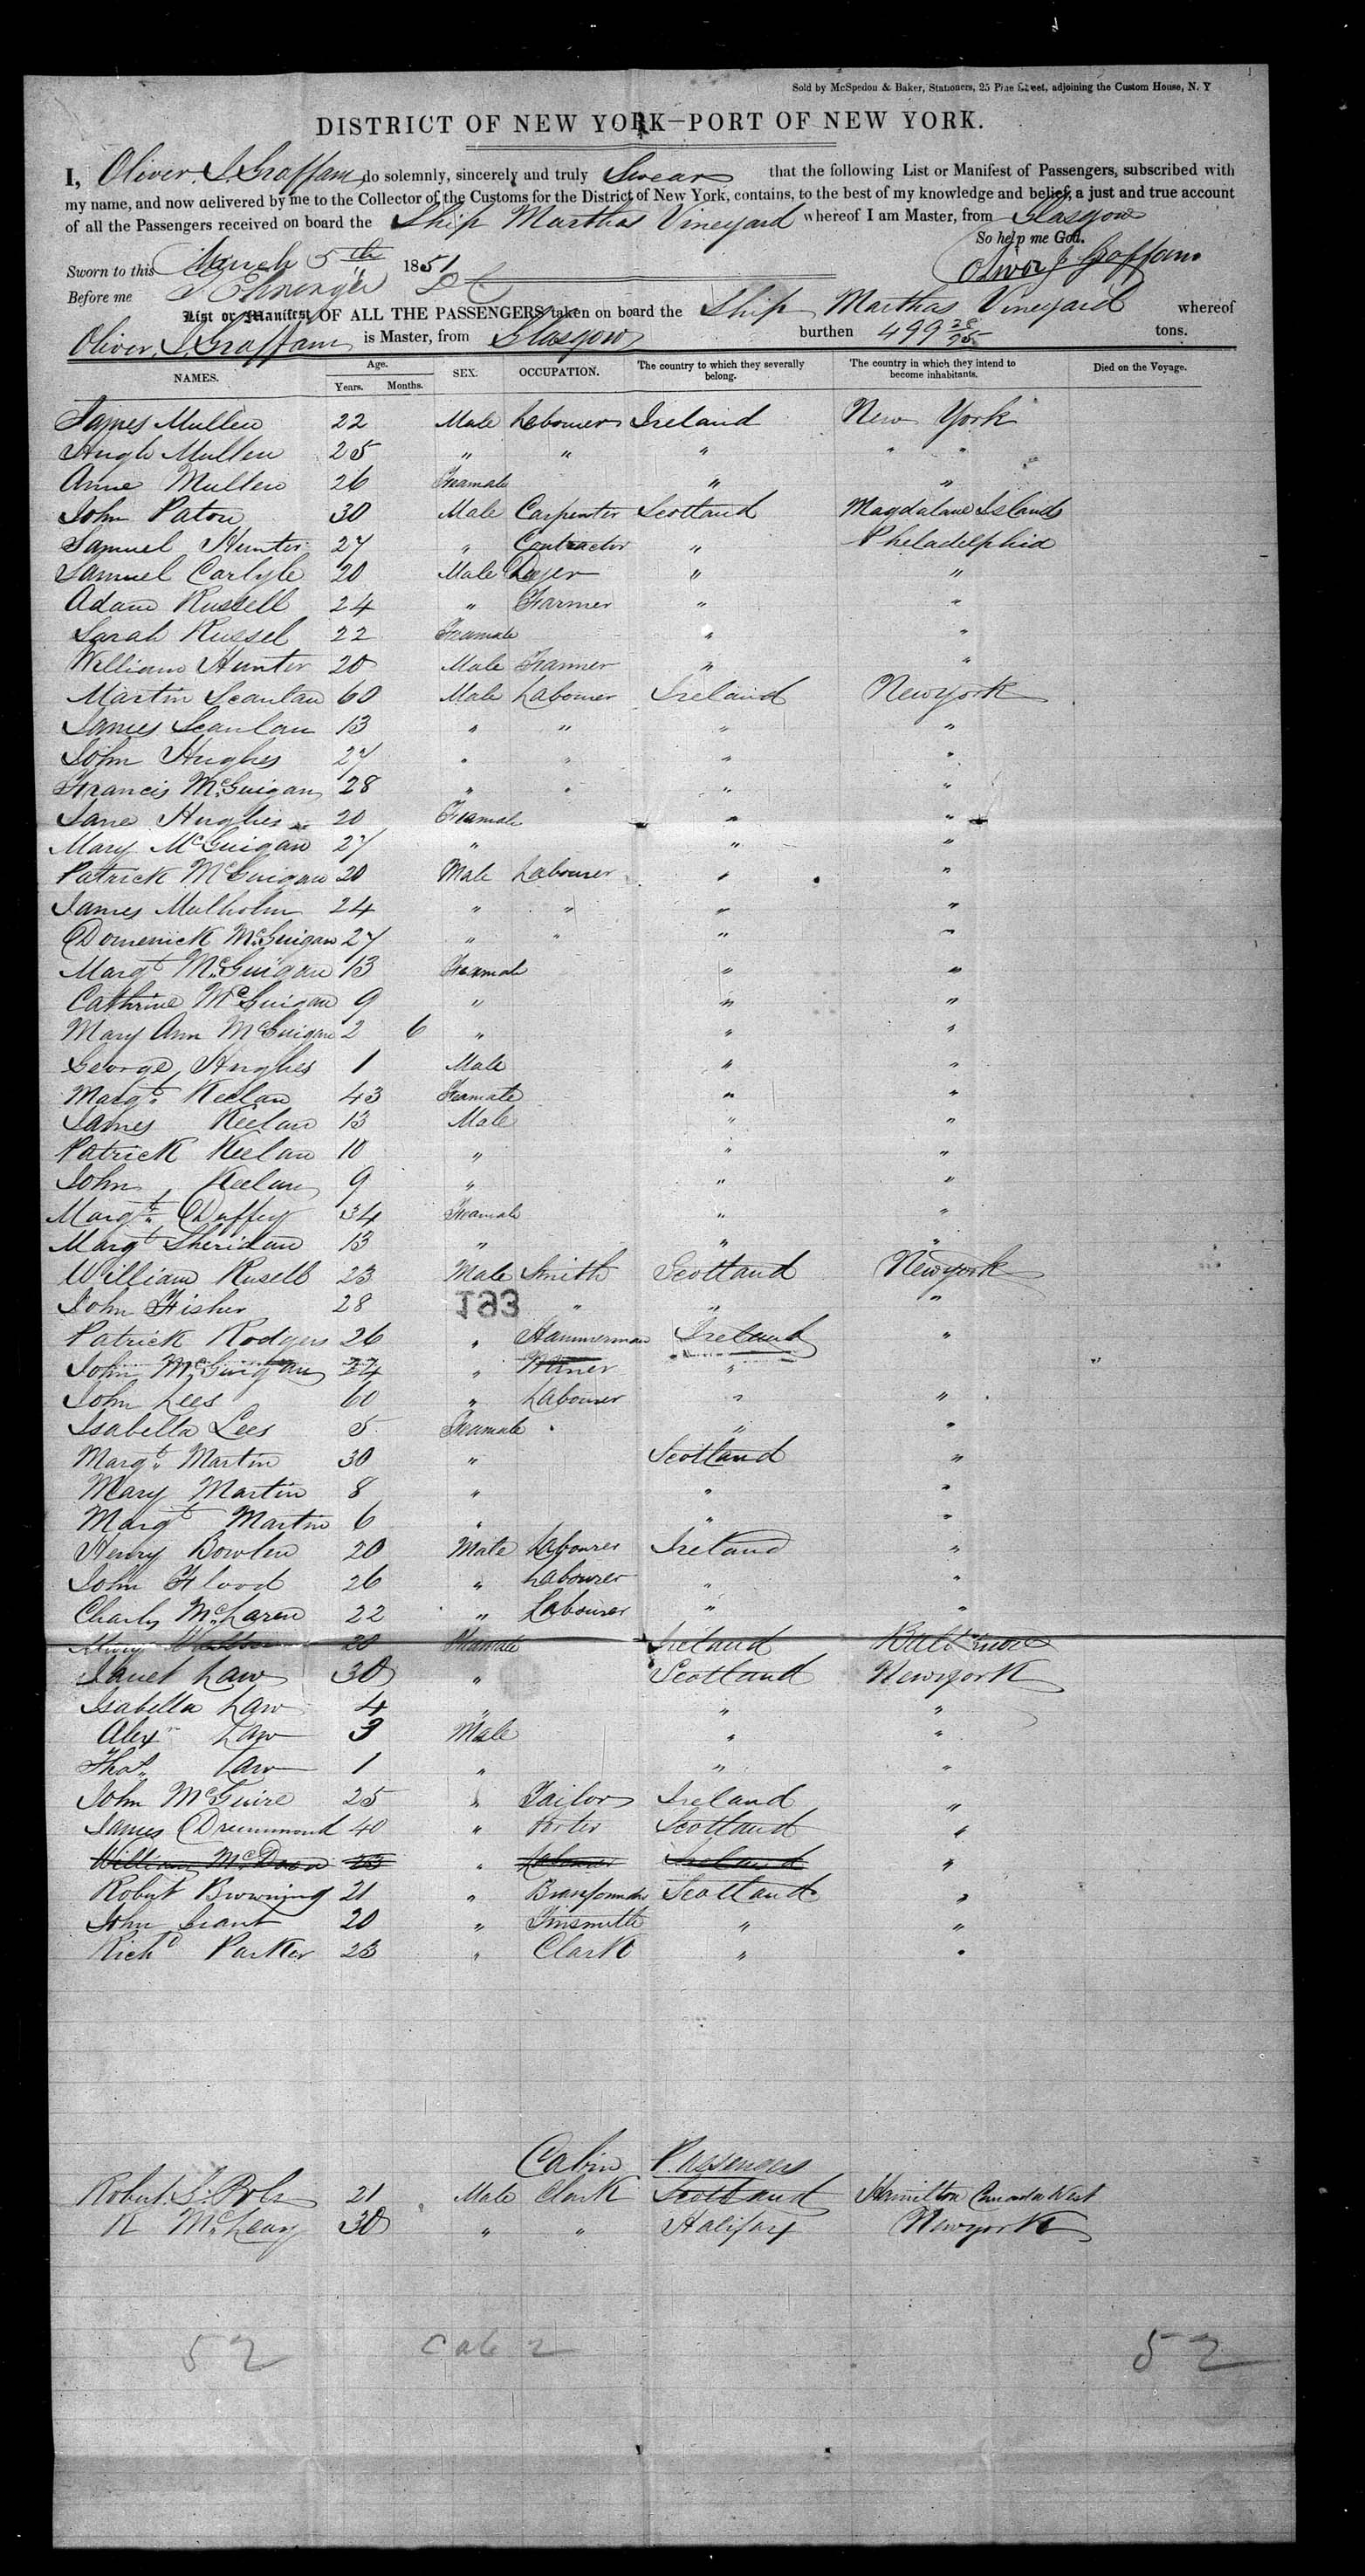 Sold by McSpedon & Baker, Stationers, 25 Pine Street, adjoining the Custom House, N. Y
DISTRICT OF NEW YORK—PORT OF NEW YORK.
I, Oliver J. Graffam, do solemnly, sincerely and truly Swear that the following List or Manifest of Passengers, subscribed with
my name, and now delivered by me to the Collector of the Customs for the District of New York, contains, to the best of my knowledge and belief, a just and true account
of all the Passengers received on board the Ship Marthas Vineyard whereof I am Master, from Glasgow
So help me God.
Sworn to this March 5th 1851 Oliver J Graffam
Before me
List or Manifest OF ALL THE PASSENGERS taken on board the Ship Marthas Vineyard whereof
Oliver J. Graffam is Master, from Glasgow burthen 499 28/95 tons.
NAMES. Age. Years. Months. SEX. OCCUPATION. The country to which they severally belong. The country in which they intend to become inhabitants. Died on the Voyage.
James Mullen 22 Male Labourer Ireland New York
Hugh Mullen 25 " " " " "
Anne Mullen 26 Feamale " "
John Paton 30 Male Carpenter Scotland Magdalane Islands
Samuel Hunter 27 " Contractor " Pheladelphia
Samuel Carlyle 20 Male Dyer " "
Adam Russell 24 " Farmer " "
Sarah Russel 22 Feamale " "
William Hunter 20 Male Farmer " "
Martin Scanlan 60 Male Labourer Ireland Newyork
James Scanlan 13 " " " "
John Hughes 27 " " " "
Francis McGuigan 28 " " " "
Jane Hughes 20 Feamale " "
Mary McGuigan 27 " " "
Patrick McGuigan 20 Male Labourer " "
James Mulholm 24 " " " "
Domenick McGuigan 27 " " " "
Margt McGuigan 13 Feamale " "
Cathrine McGuigan 9 " " "
Mary Ann McGuigan 2 6 " " "
George Hughes 1 Male " "
Margt. Keelan 43 Feamale " "
James Keelan 13 Male " "
Patrick Keelan 10 " " "
John Keelan 9 " " "
Margt. Duffey 34 Feamale " "
Margt Sheridan 13 " " "
William Rusell 23 Male Smith Scotland Newyork
John Fisher 28 193 " " "
Patrick Rodgers 26 " Hammerman Ireland "
John McGuigan 24 " Miner " "
John Lees 60 " Labourer " "
Isabella Lees 5 Feamale " "
Margt. Martin 30 " Scotland "
Mary Martin 8 " " "
Margt Martin 6 " " "
Henry Bowlen 20 Male Labourer Ireland "
John Flood 26 " Labourer " "
Charles McLaren 22 " Labourer " "
Mary 20 Feamale Ireland Baltimore
Janet Law 30 " Scotland Newyork
Isabella Law 4 " " "
Alexr Law 3 Male " "
Thos. Law 1 " " "
John McGuire 25 " Tailor Ireland "
James Drummond 40 " Porter Scotland "
William McDown 23 " Labourer Ireland "
Robert Browning 21 " Brassfounder Scotland "
John Grant 20 " Tinsmith " "
Richd Parker 23 " Clark " "
Cabin Passengers
Robert S. 21 Male Clark Scotland Hamilton Canada West
R McLeay 30 " " Halifax Newyork
52 Cab 2 52